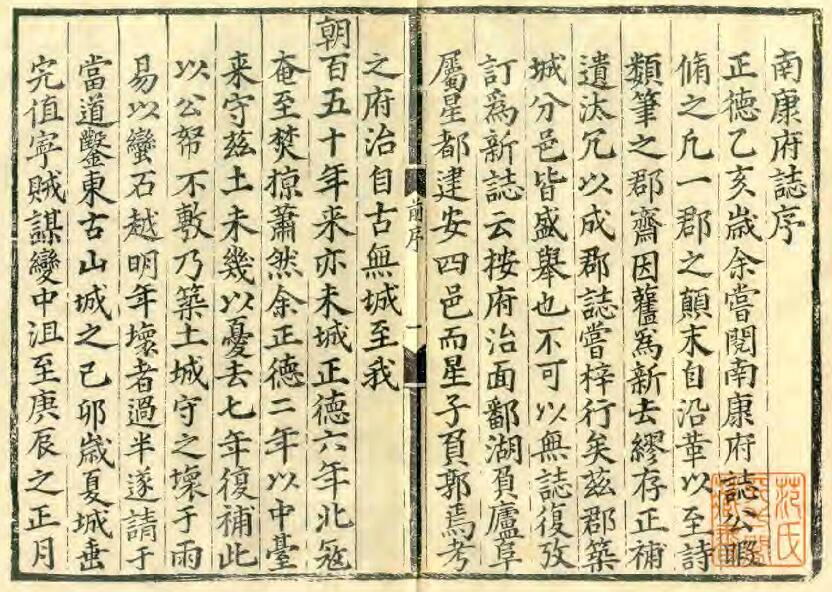 南康府誌序
正德乙亥歲余嘗閱南康府誌公暇
脩之凡一郡之顛末自沿革以至詩
類筆之郡齋因舊爲新去繆存正補
遺汰冗以成郡誌嘗梓行矣茲郡築
城分邑皆盛舉也不可以無誌復攷
訂爲新誌云按府治面鄱湖負廬阜
屬星都建安四邑而星子負郭焉考
前序
一
之府治自古無城至我
朝百五十年来亦未城正德六年北㓂
奄至焚掠蕭然余正德二年以中臺
来守茲土未幾以憂去七年復補此
以公帑不敷乃築土城守之壞于雨
易以蠻石越明年壞者過半遂請于
當道鑿東古山城之己卯歲夏城垂
完值寧賊謀變中沮至庚辰之正月
范氏